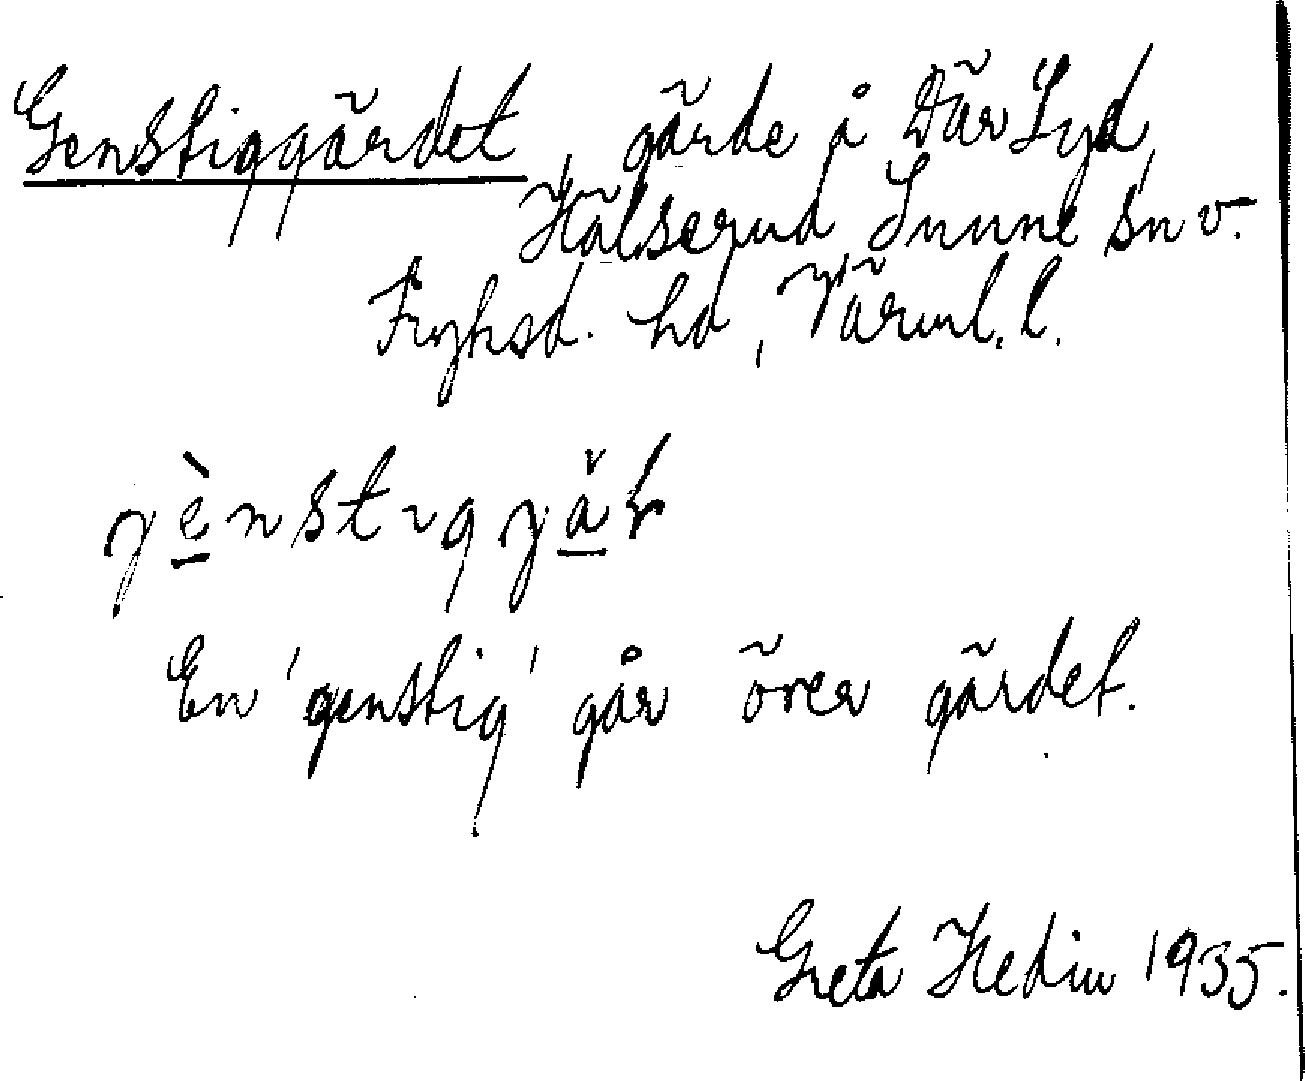 Genstiggärdet, gärde å Där Syd,
Hälserud Sunne sn v.
Fryksd. hd, Värml. l.
En 'genstig' går över gärdet.
Greta Hedin 1935.